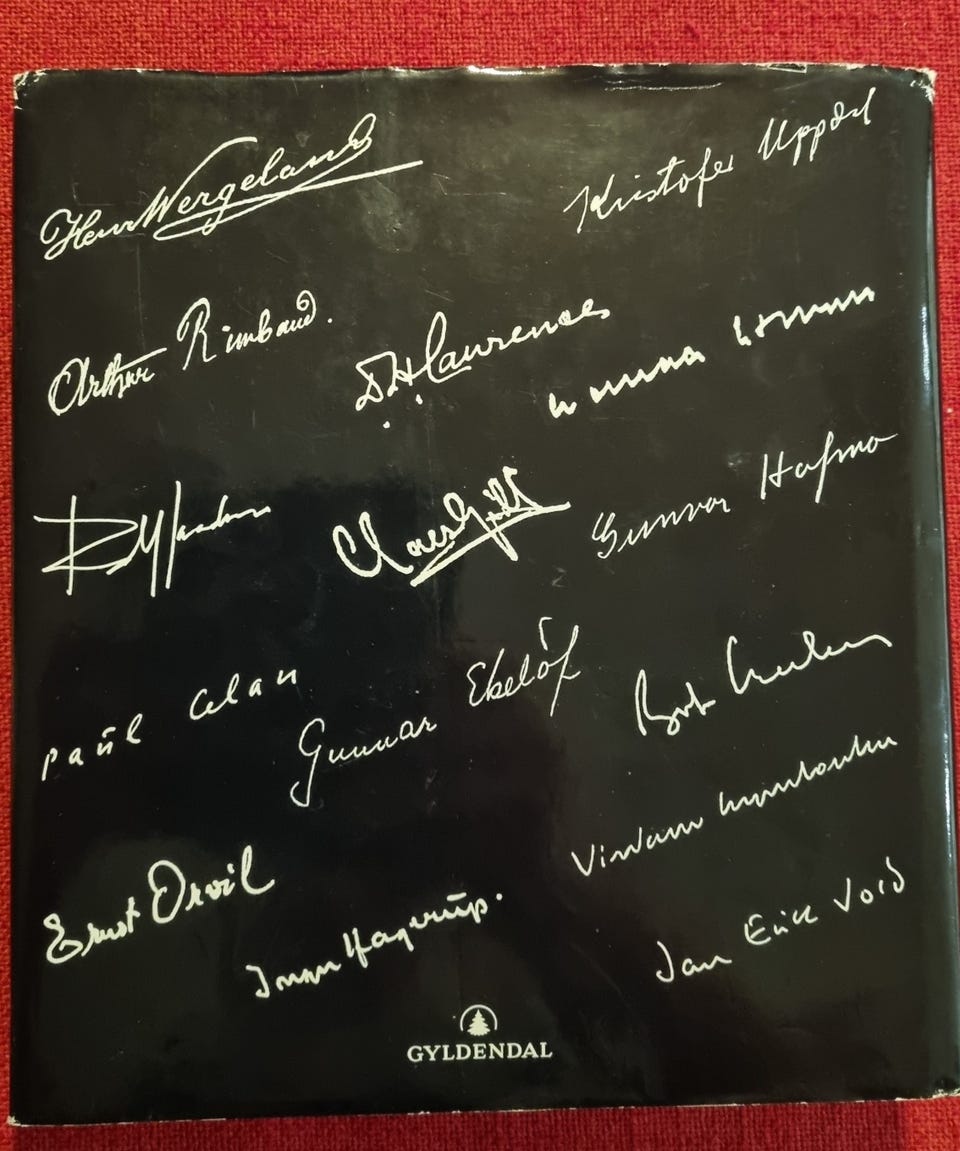 Henr Wergeland
Kristofer Uppdal
Arthur Rimbaud.
D.H. Lawrence
Claes Gill
Gunvor Hofmo
Paul Celan
Gunnar Ekelöf
Ernst Orvil
Inger Hagerup.
Jan Erik Vold
GYLDENDAL